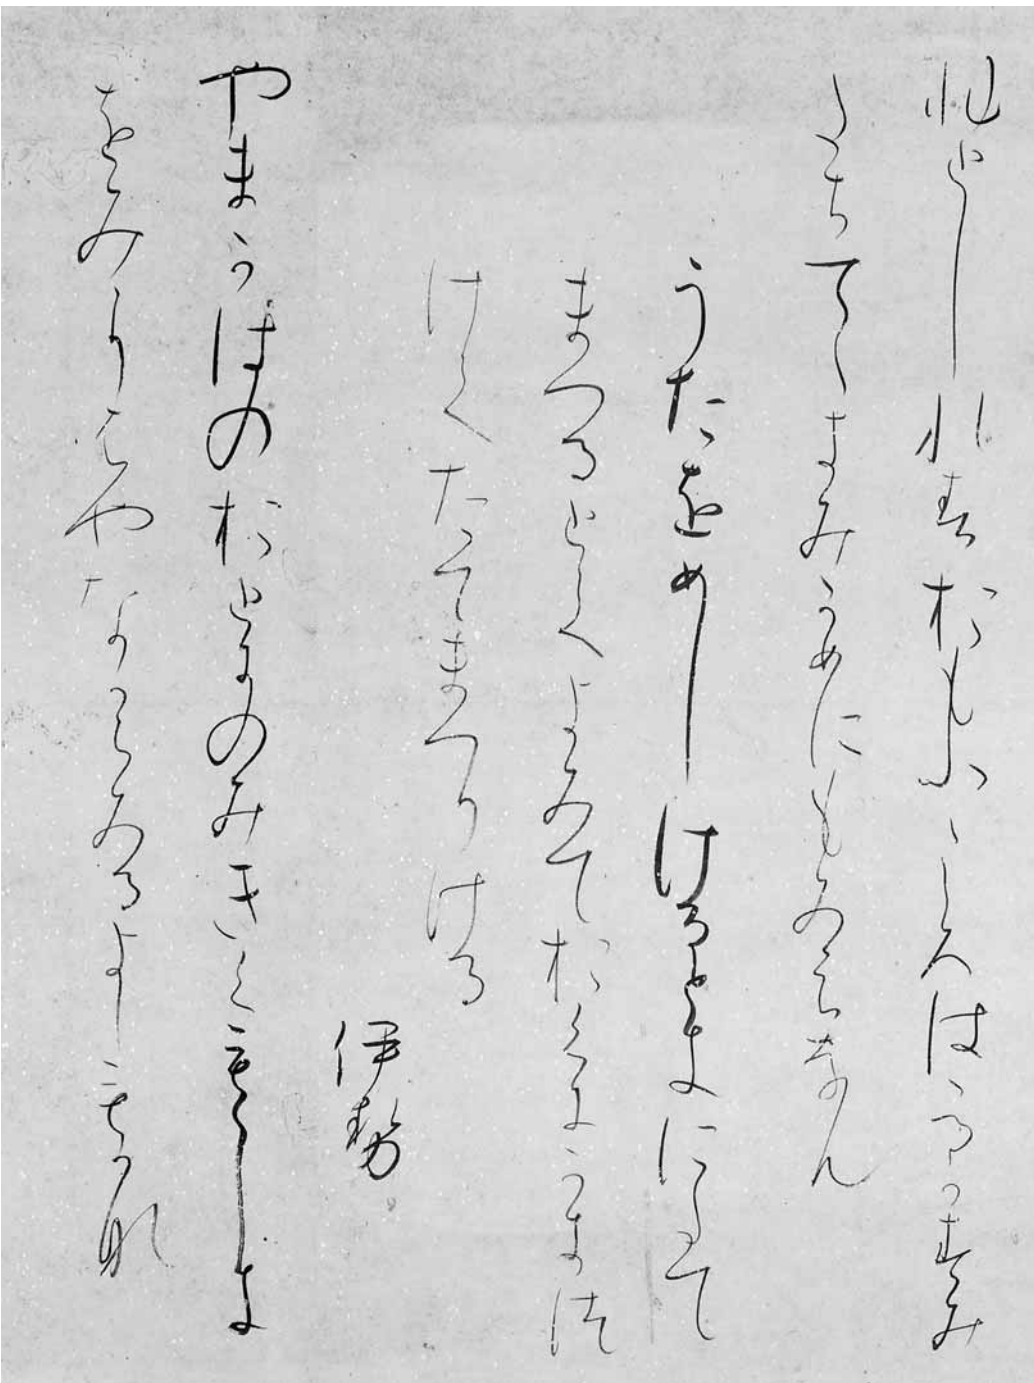 ひとしれすおもふこゝろはゝるかすみ
たちてゝきみかめにもみえなん
うためしけるときにたて
まつるとてよみておくにかきつ
けてたてまつりける
伊勢
やまかはのおとにのみきくもゝしき
をみをはやなからみるよしもかな